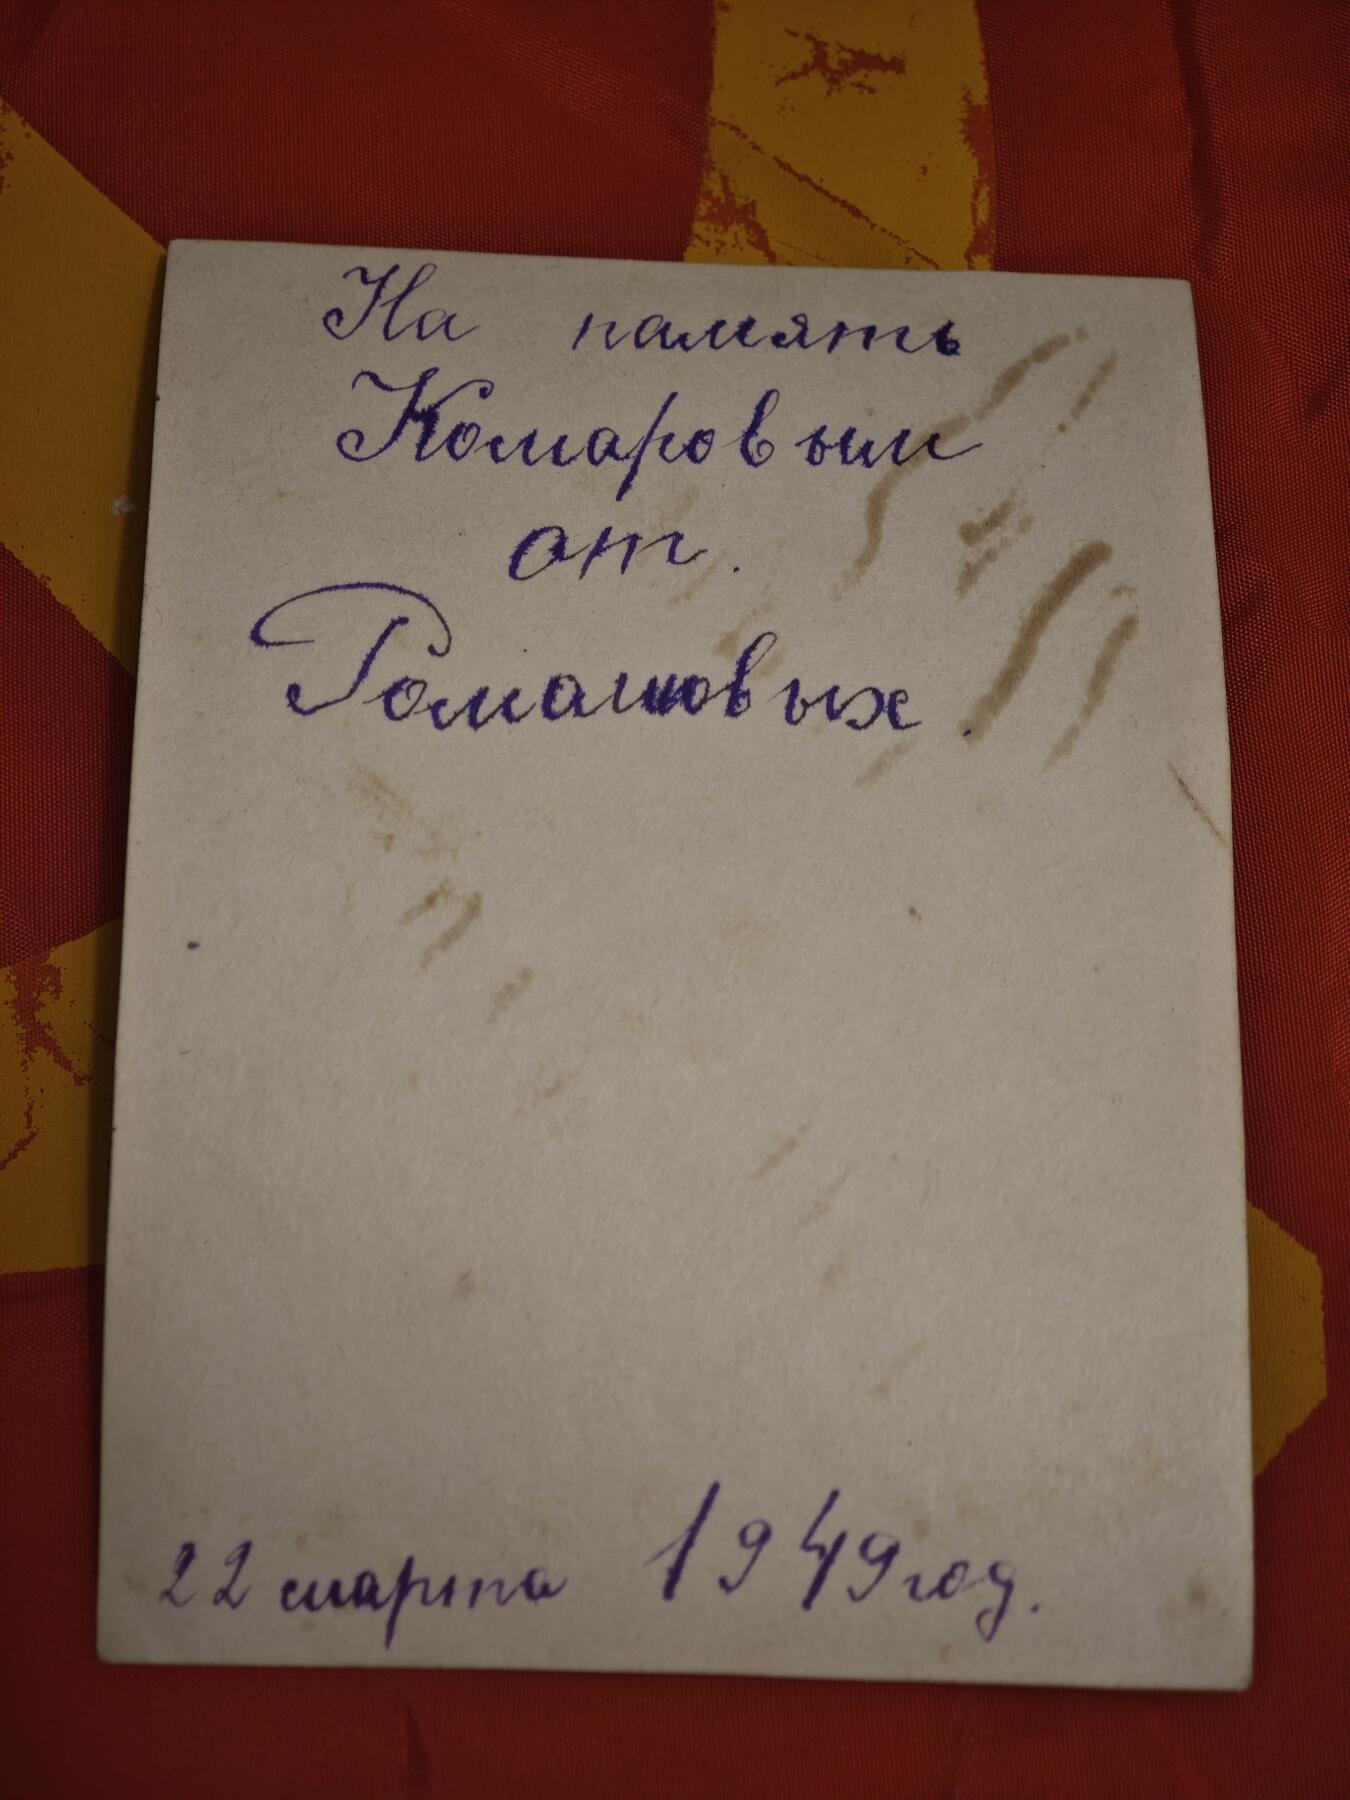 На память
Комаровым
от.
Ромашовых.
22 марта 1949 год.